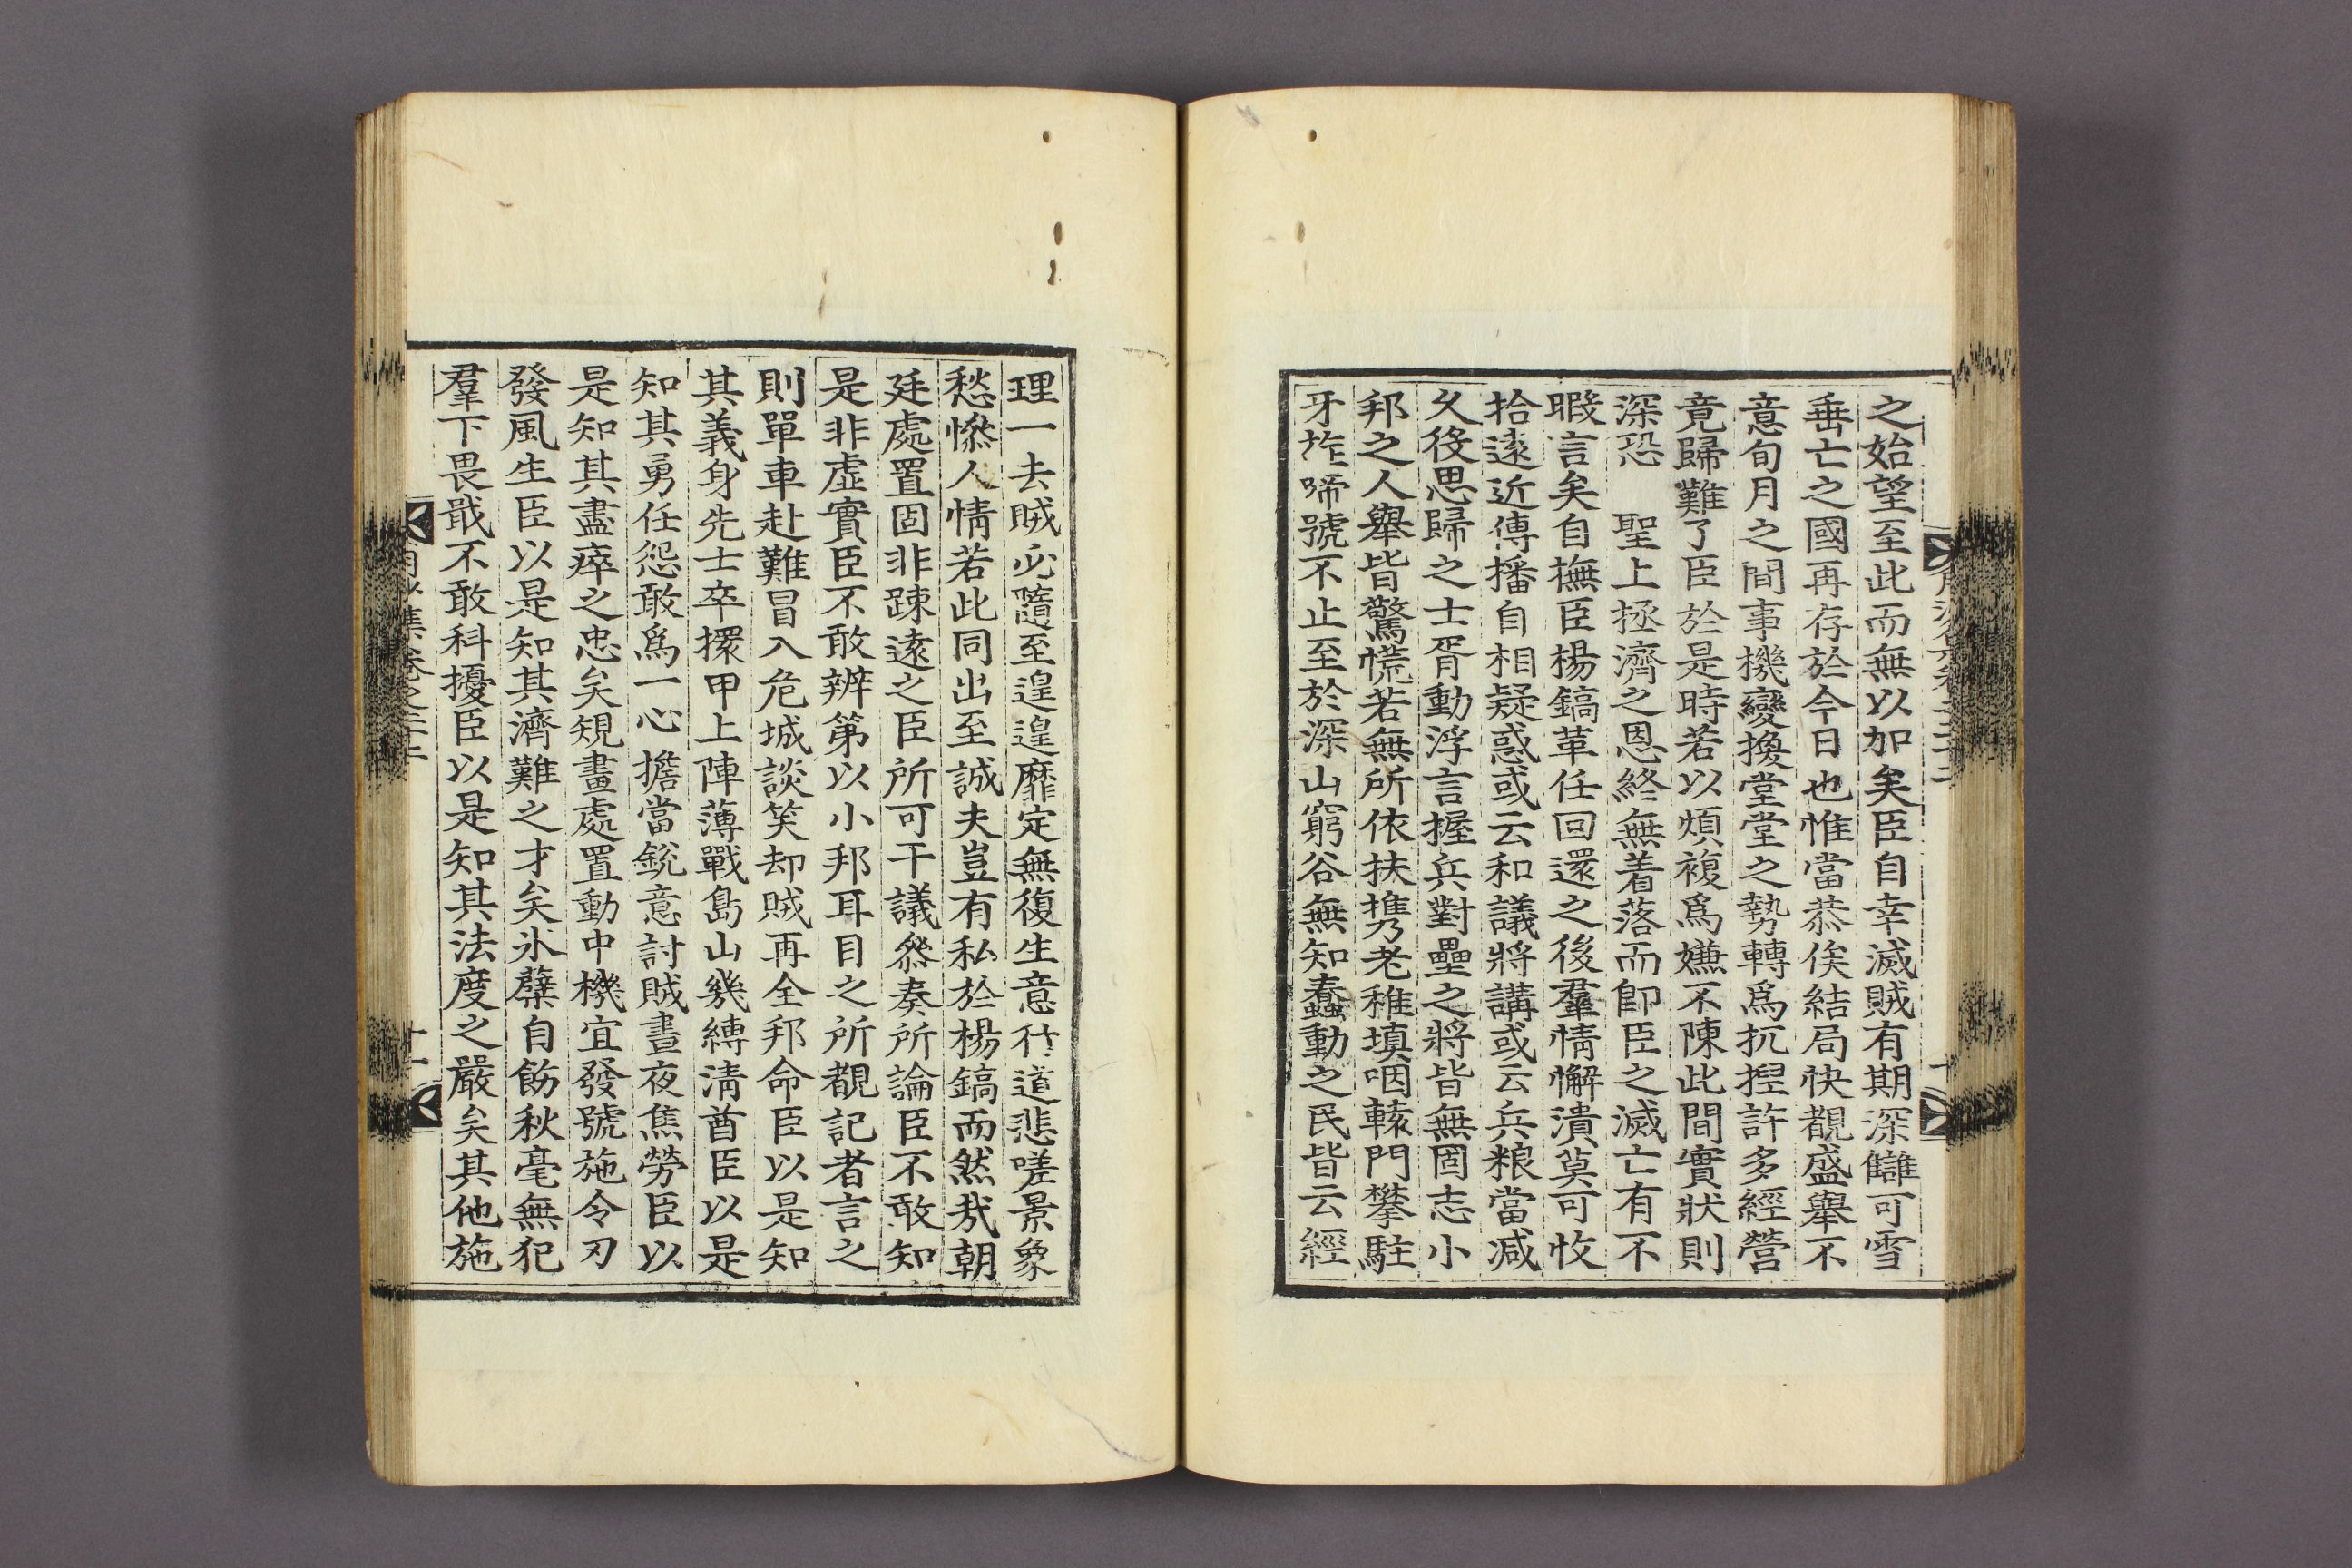 之始望至此而無以加矣臣自幸滅賊有期深讎可雪
垂亡之國再存於今日也惟當恭俟結局快覩盛舉不
意旬月之間事機變換堂堂之勢轉爲扤揑許多經營
竟歸難了臣於是時若以煩複爲嫌不陳此間實狀則
深恐　聖上拯濟之恩終無着落而卽臣之滅亡有不
暇言矣自撫臣楊鎬革任回還之後羣情懈潰莫可收
拾遠近傳播自相疑惑或云和議將講或云兵粮當减
久役思歸之士胥動浮言握兵對壘之將皆無固志小
邦之人舉皆驚慌若無所依扶携老稚塡咽轅門攀駐
牙旌啼號不止至於深山窮谷無知蠢動之民皆云經
理一去賊必隨至遑遑靡定無復生意行道悲嗟景象
愁慘人情若此同出至誠夫豈有私於楊鎬而然㢤朝
廷處置固非踈遠之臣所可干議叅奏所論臣不敢知
是非虛實臣不敢辨第以小邦耳目之所覩記者言之
則單車赴難冒入危城談笑却賊再全邦命臣以是知
其義身先士卒擐甲上陣薄戰島山幾縛淸酋臣以是
知其勇任怨敢爲一心擔當銳意討賊晝夜焦勞臣以
是知其盡瘁之忠矣規畫處置動中機宜發號施令刃
發風生臣以是知其濟難之才矣氷蘗自飭秋毫無犯
羣下畏戢不敢科擾臣以是知其法度之嚴矣其他施
集卷之二十二
十一